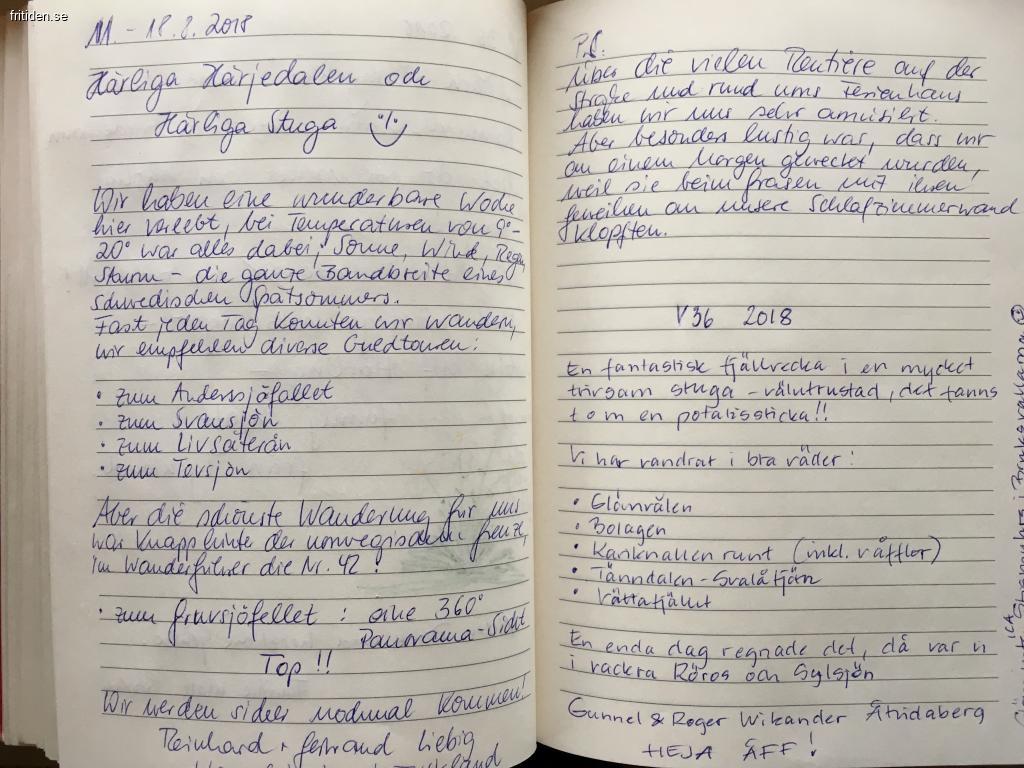 fritiden.se
11. - 18.8.2018
Härliga Härjedalen och
Härliga Stuga
Wir haben eine wunderbare Woche
hier verlebt, bei Temperaturen von 9°-
20° war alles dabei, Sonne, Wind, Regen,
Sturm - die ganze Bandbreite eines
schwedischen Spätsommers.
Fast jeden Tag konnten wir wandern,
wir empfehlen diverse Touren:
· zum Anderssjöfallet
· zum Svansjön
· zum Livsäterån
· zum Tevsjön
Aber die schönste Wanderung für uns
war knapp hinter der norwegischen Grenze,
im Wanderführer die Nr. 42!
· zum Gruvsjöfellet: eine 360°
Panorama-Sicht
Top!!
Wir werden sicher nochmal kommen!
Reinhard + Gertraud Liebig
P.S.
Über die vielen Rentiere auf der
Straße und rund ums Ferienhaus
haben wir uns sehr amüsiert.
Aber besonders lustig war, dass wir
an einem Morgen geweckt wurden,
weil sie beim Grasen mit ihren
Geweihen an unsere Schlafzimmerwand
klopften.
V36 2018
En fantastisk fjällvecka i en mycket
trivsam stuga - välutrustad, det fanns
t o m en potatissticka!!
Vi har vandrat i bra väder:
· Glänvålen
· Bolagen
· Kariknallen runt (inkl. våfflor)
· Tänndalen - Svalåtjärn
· Vättafjället
En enda dag regnade det, då var vi
i vackra Röros och Sylsjön
Gunnel & Roger Wikander Åtvidaberg
HEJA ÅFF!